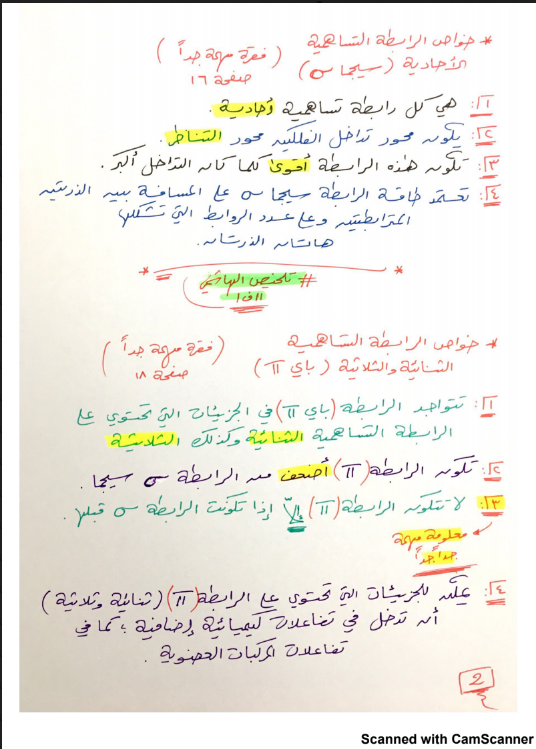 * خواص الرابطة التساهمية
الأحادية (سيجما σ) (فقرة مهمة جداً صفحة ١٦)
١: هي كل رابطة تساهمية أحادية.
٢: يكون محور تداخل الفلكين محور التناظر.
٣: تكون هذه الرابطة أقوى كلما كان التداخل أكبر.
٤: تعتمد طاقة الرابطة سيجما σ على المسافة بين الذرتين
المترابطتين وعلى عدد الروابط التي تشكلها
هاتان الذرتان.
* *
# تلخيص الهاشمي
١١ف١
* خواص الرابطة التساهمية
الثنائية والثلاثية (باي π) (فقرة مهمة جداً صفحة ١٨)
١: تتواجد الرابطة (باي π) في الجزيئات التي تحتوي على
الرابطة التساهمية الثنائية وكذلك الثلاثية
٢: تكون الرابطة (π) أضعف من الرابطة σ سيجما.
٣: لا تتكون الرابطة (π) إلّا إذا تكونت الرابطة σ قبلها.
معلومة مهمة
جداً جداً
٤: يمكن للجزيئات التي تحتوي على الرابطة (π) (ثنائية وثلاثية)
أن تدخل في تفاعلات كيميائية إضافية ؛ كما في
تفاعلات المركبات العضوية.
2
Scanned with CamScanner